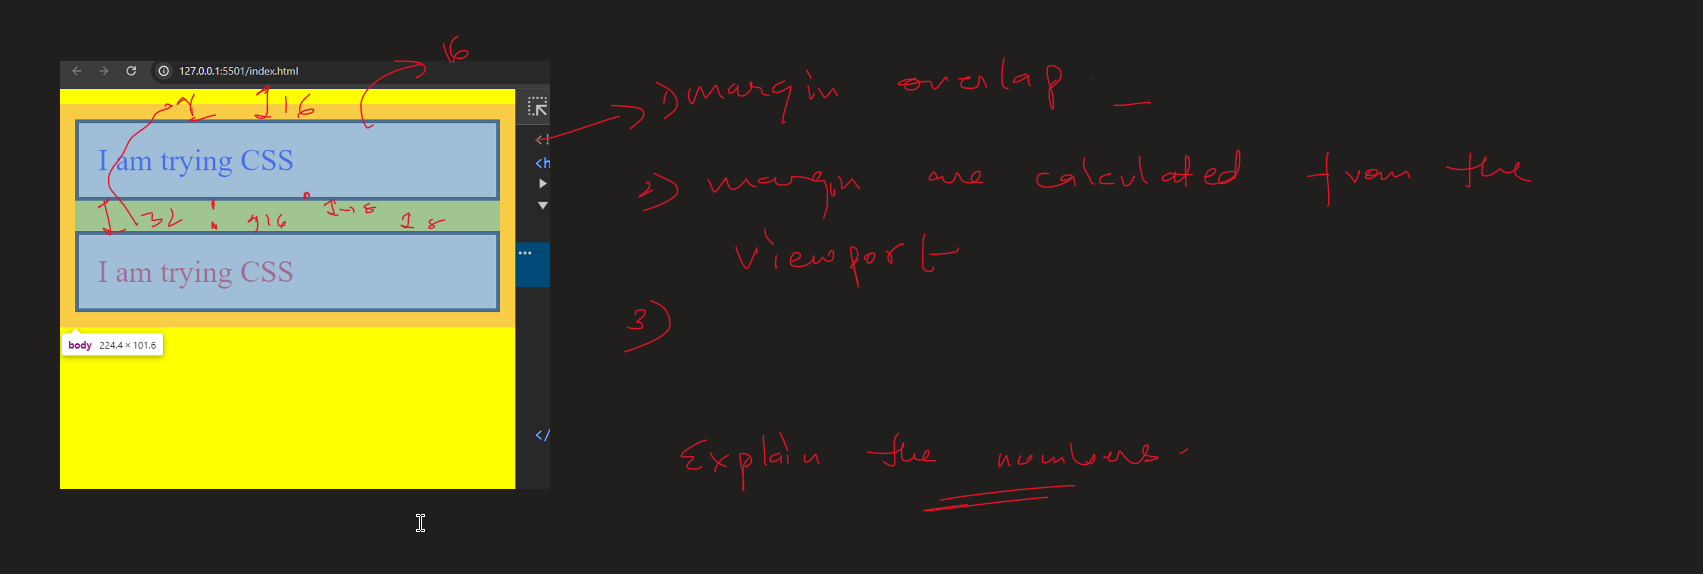 16
127.0.0.1:5501/index.html
16
I am trying CSS
32
16
8
I am trying CSS
body 224.4 × 101.6
1) margin overlap
2) margin are calculated from the
viewport
3)
Explain the numbers.